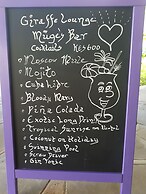 Giraffe Lounge
Mugs Bar
Cocktails Ks,600
Moscow Mule
Mojito
Cuba Libre
Bloody Mary
Piña Colada
Exotic Long Drink
Tropical Sunrise on
Coconut on Holiday
Swimming Pool
Screw Driver
Gin Tonic